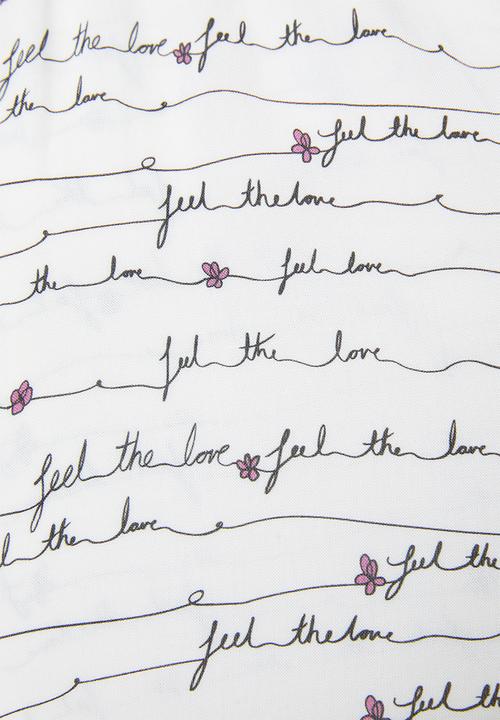 feel the love feel the love
the love
feel the love
feel the love
the love feel love
feel the love
feel the love feel the love
the love
feel the
feel the love
feel the